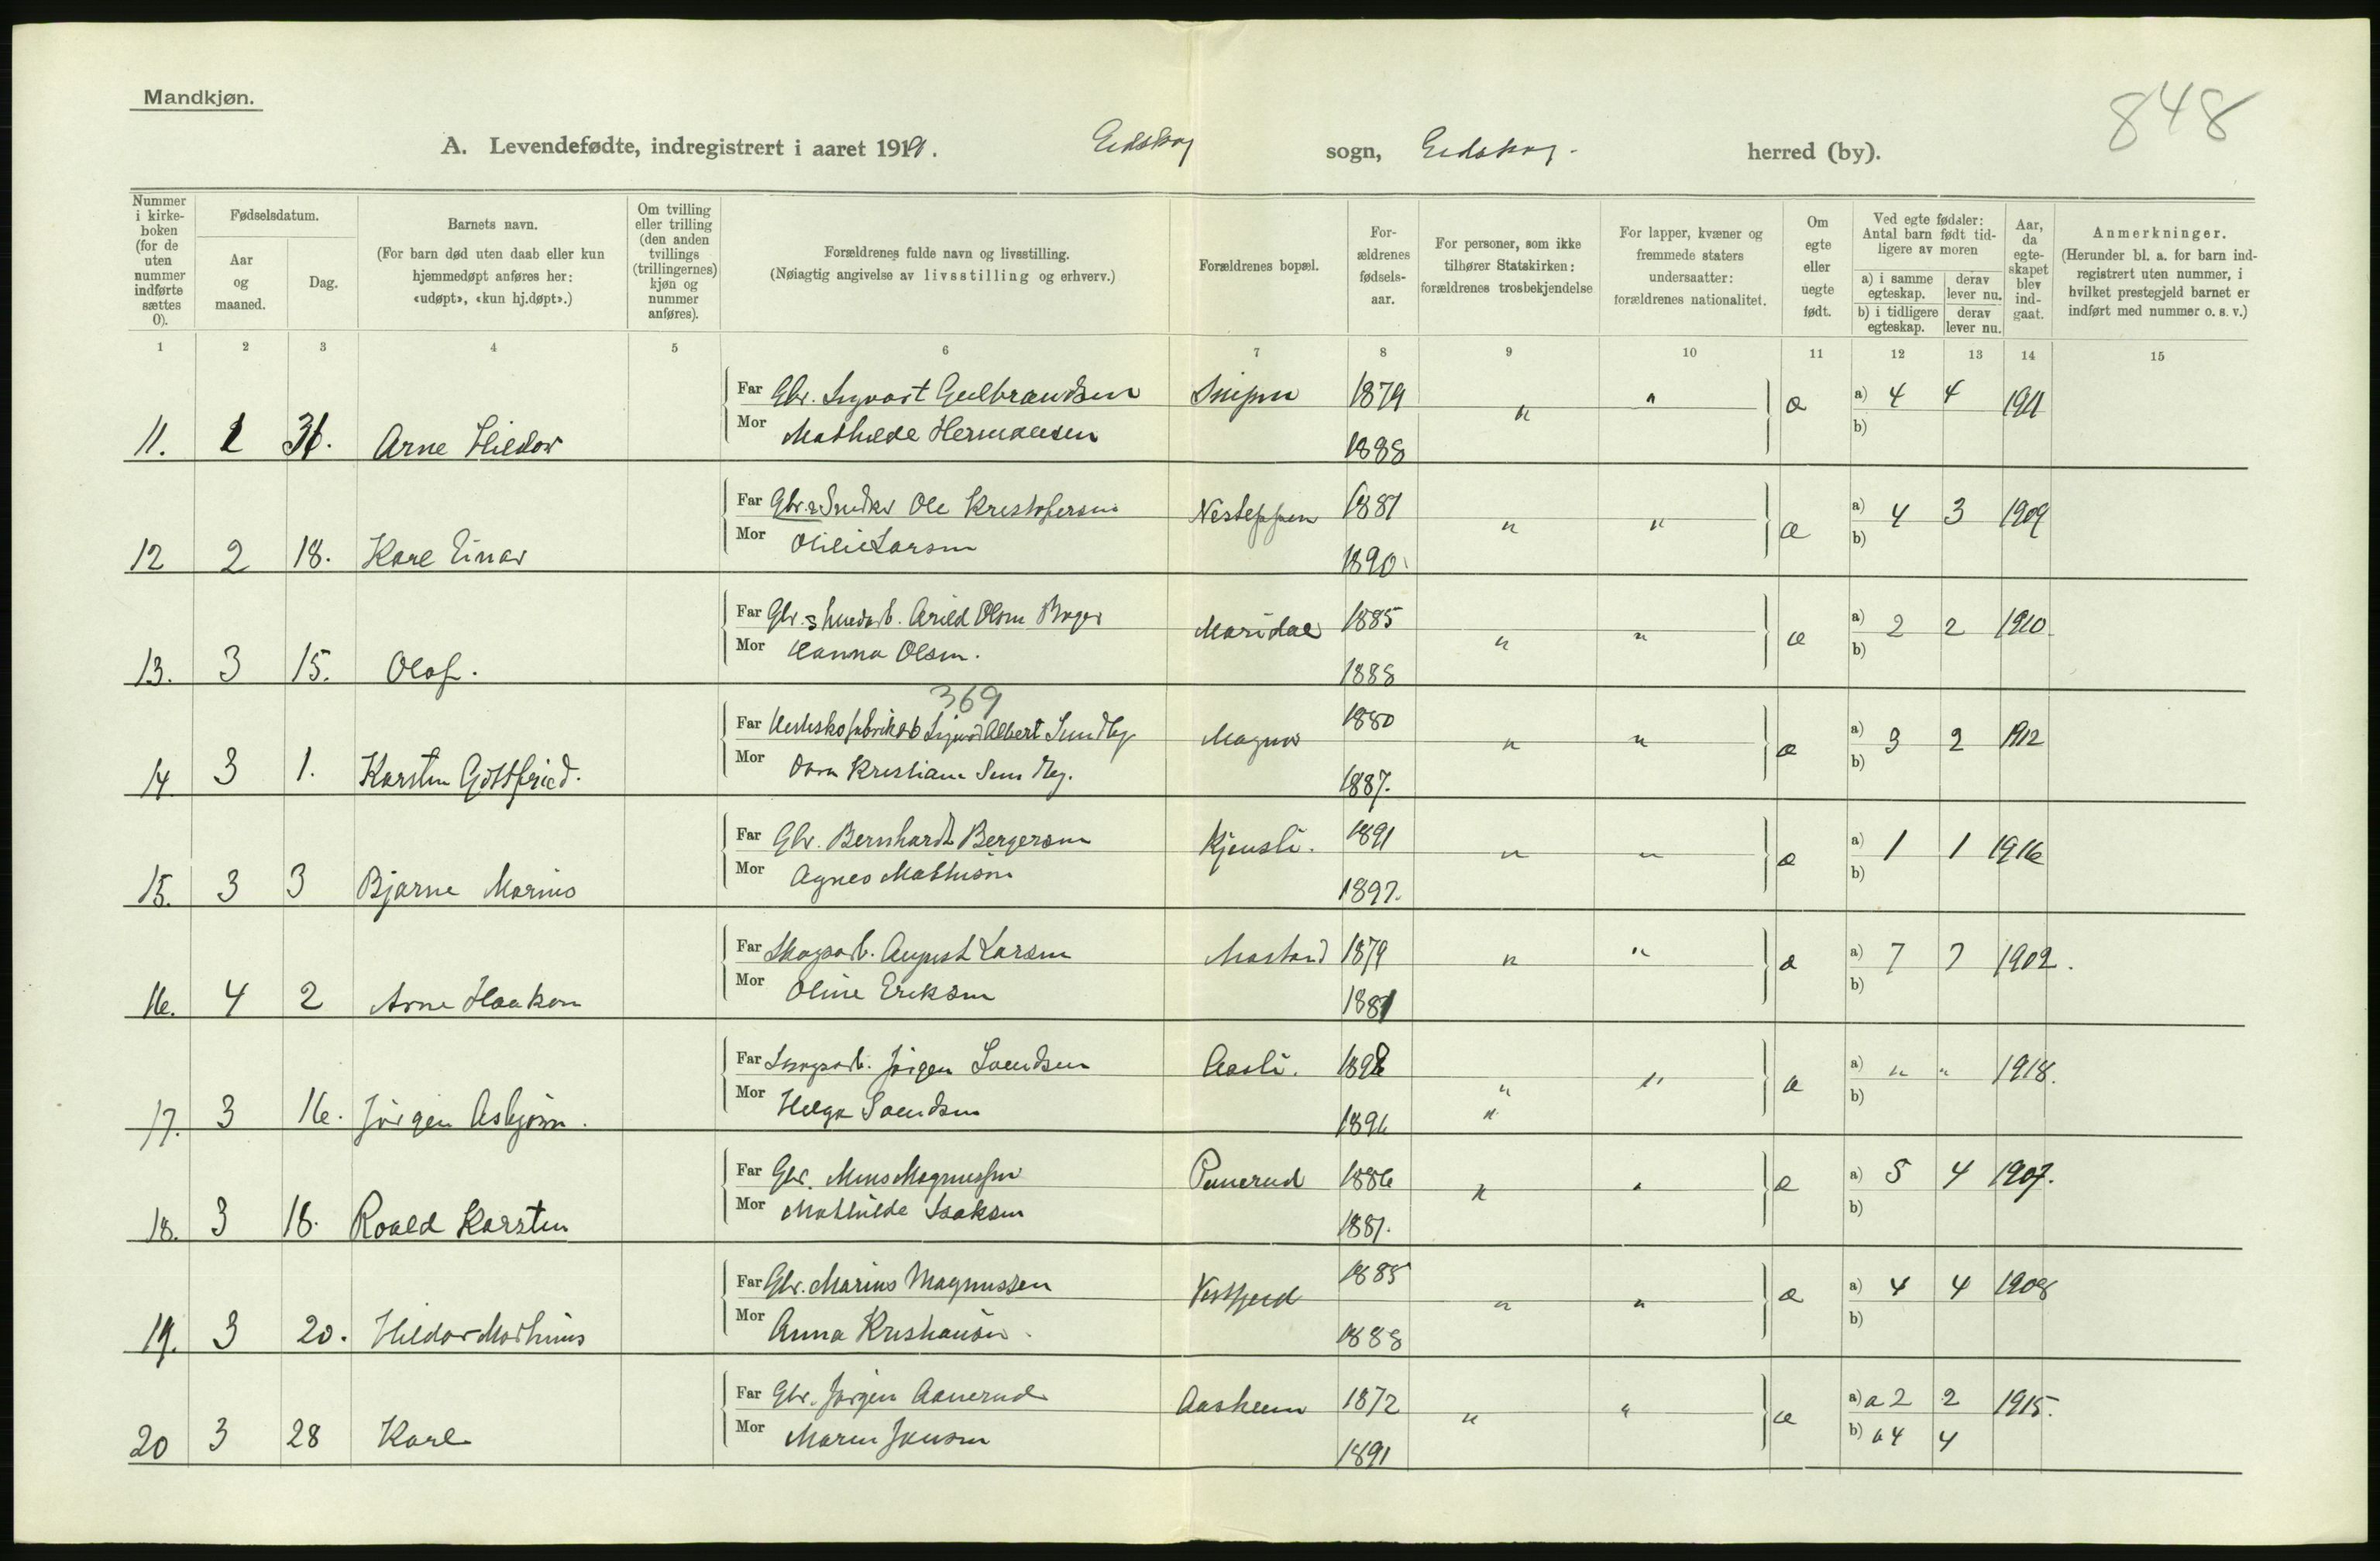 Mandkjøn.
848
A. Levendefødte, indregistrert i aaret 1919. Eidskog sogn, Eidskog. herred (by).
Nummer i kirke-boken (for de uten nummer indførte sættes 0).
Fødselsdatum.
Aar og maaned.
Dag.
Barnets navn.
(For barn død uten daab eller kun hjemmedøpt anføres her: «udøpt», «kun hj.døpt».)
Om tvilling eller trilling (den anden tvillings (trillingernes) kjøn og nummer anføres).
Forældrenes fulde navn og livsstilling.
(Nøiagtig angivelse av livsstilling og erhverv.)
Forældrenes bopæl.
For-ældrenes fødsels-aar.
For personer, som ikke tilhører Statskirken: forældrenes trosbekjendelse
For lapper, kvæner og fremmede staters undersaatter: forældrenes nationalitet.
Om egte eller uegte født.
Ved egte fødsler: Antal barn født tid-ligere av moren
a) i samme egteskap.
derav lever nu.
b) i tidligere egteskap.
derav lever nu.
Aar, da egte-skapet blev ind-gaat.
Anmerkninger.
(Herunder bl. a. for barn ind-registrert uten nummer, i hvilket prestegjeld barnet er indført med nummer o. s. v.)
1 2 3 4 5 6 7 8 9 10 11 12 13 14 15
Far Gbr. Sigvart Gulbrandsen 1879 " " a) 4 4 1911
11. 1 31. Arne Hildor Mor Mathilde Hermansen 1888 b)
Far Gbr. & Snedker Ole Kristofersen 1881 " " a) 4 3 1909
12 2 18. Kare Einar Mor Otilie Larsen 1890. b)
Far Gbr. Arild Olsen Maridal 1885 " " a) 2 2 1910.
13. 3 15. Olaf. Mor Hanna Olsen. 1888 b)
369
Far Hesteskofabrikarb Sigurd Albert Sundby Magnor 1880 " " a) 3 2 1912
14 3 1. Karsten Gottfried. Mor Kristiane Sundby. 1887. b)
Far Gbr. Bernhardt Bergersen Kjensli. 1891 " " a) 1 1 1916
15. 3 3 Bjarne Marius Mor Agnes Mathisen 1897. b)
Far Skogsarb. August Larsen 1879 " " a) 7 7 1902.
16. 4 2 Arne Haakon Mor Oline Eriksen 1881 b)
Far Skogsarb. Jørgen Svendsen Aasli. 1898 " " a) " " 1918.
17. 3 16. Jørgen Asbjørn. Mor Helga Svendsen 1896 " b)
Far Gbr. Mons Magnussen 1886 " " a) 5 4 1907.
18. 3 18. Roald Karsten Mor Mathilde Isaksen 1881. b)
Far Gbr. Marius Magnussen 1885 " " a) 4 4 1908
19. 3 20. Hildor Mathius Mor Anna Kristiansen. 1888 b)
Far Gbr. Jørgen Aanerud Aasheim 1872 " " a) a 2 2 1915.
20 3 28 Karl Mor Maren Jensen 1891 b) 4 4